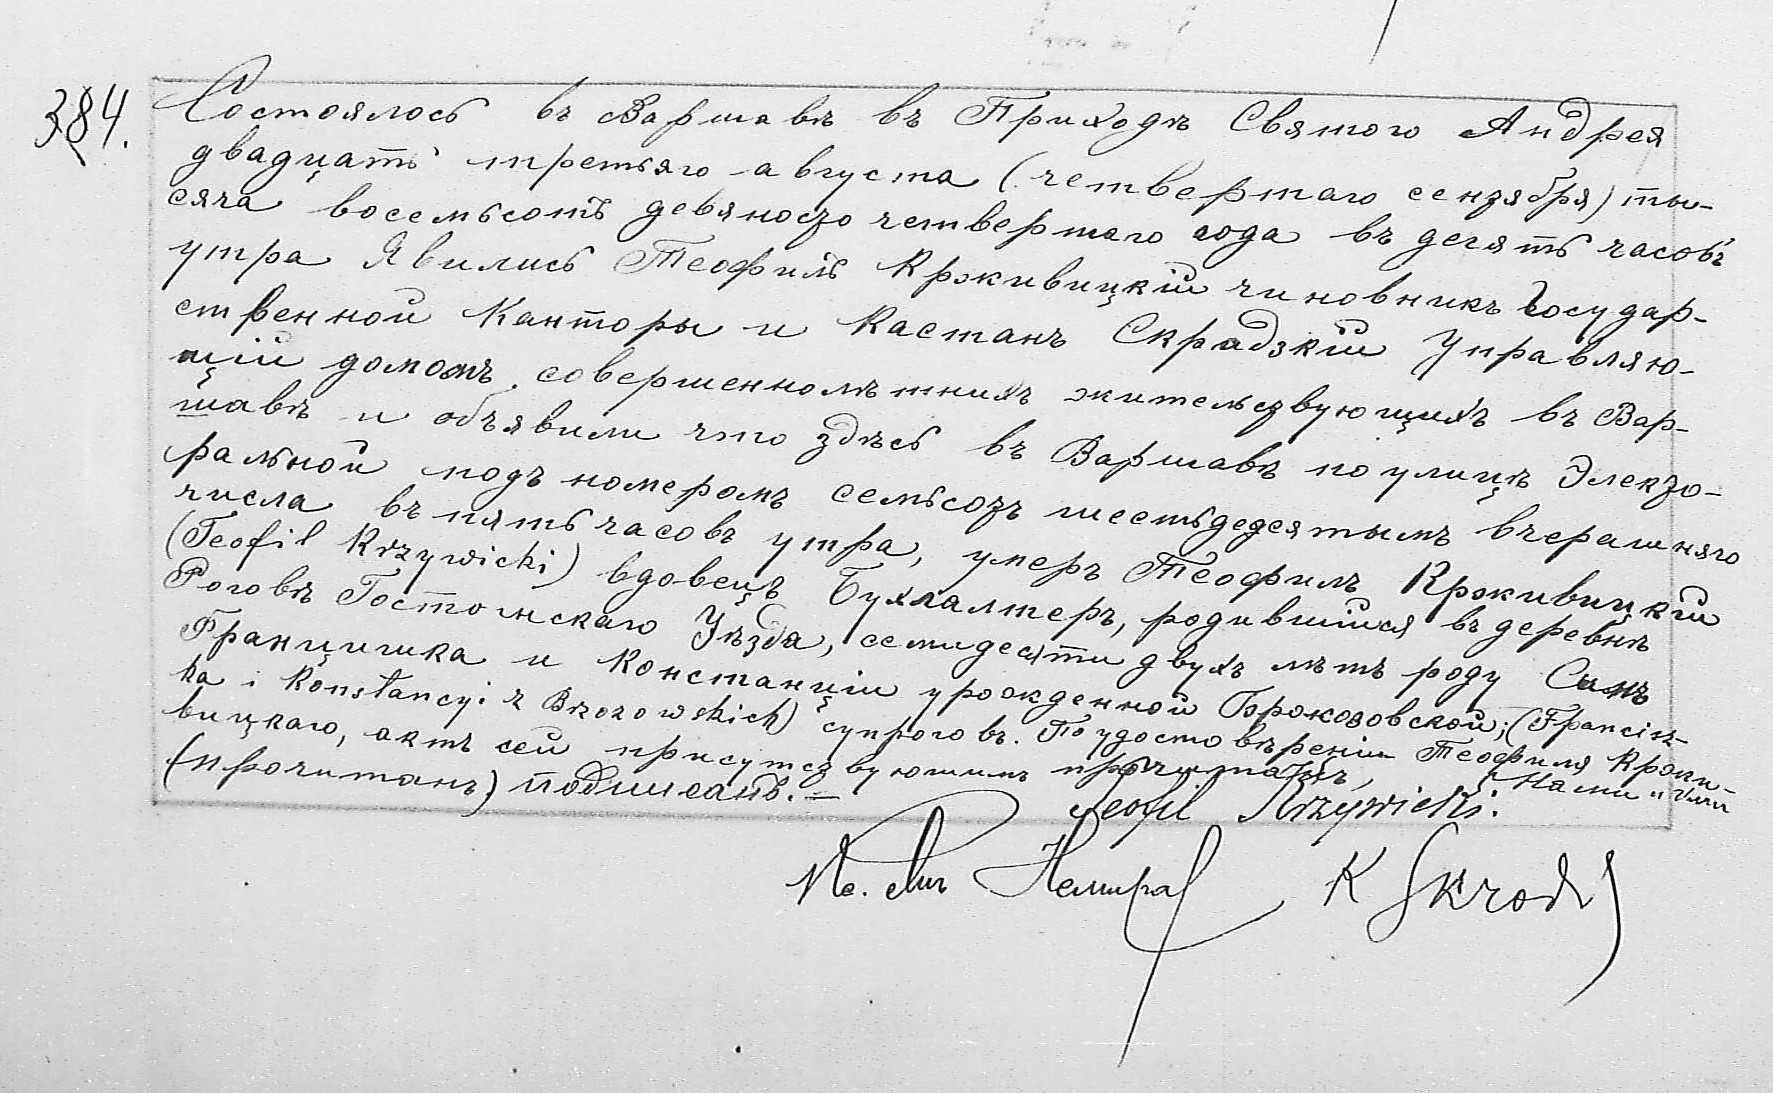 384.
Состоялось въ Варшавѣ въ Приходѣ Святого Андрея
двадцать третьяго августа (четвертаго сентября) ты-
сяча восемьсотъ девяносто четвертаго года въ десять часовъ
утра Явились Теофилъ Кржкивицкій чиновникъ Государ-
ственной Канторы и Кастанъ Скрадзкій Управляю-
щій домомъ, совершеннолѣтнихъ жительствующихъ въ Вар-
шавѣ и объявили что здѣсь въ Варшавѣ по улицѣ Электо-
ральной подъ номеромъ семьсотъ шестьдесятымъ вчерашняго
числа въ пять часовъ утра, умеръ Теофилъ Крживицкій
(Teofil Krzywicki) вдовецъ Бухгалтеръ, родившійся въ деревнѣ
Роговѣ Гостынскаго Уѣзда, семидесяти двухъ лѣтъ роду Сынъ
Францишка и Констанціи урожденной Бржозовской; (Francisz-
ka i Konstancyi z Brzozowskich) супруговъ. По удостовѣреніи Теофиля Кржи-
вицкаго, актъ сей присутствующимъ прочитанъ, Нами и Ими
(прочитанъ) подписанъ. —
Teofil Krzywicki.
K Skrodz